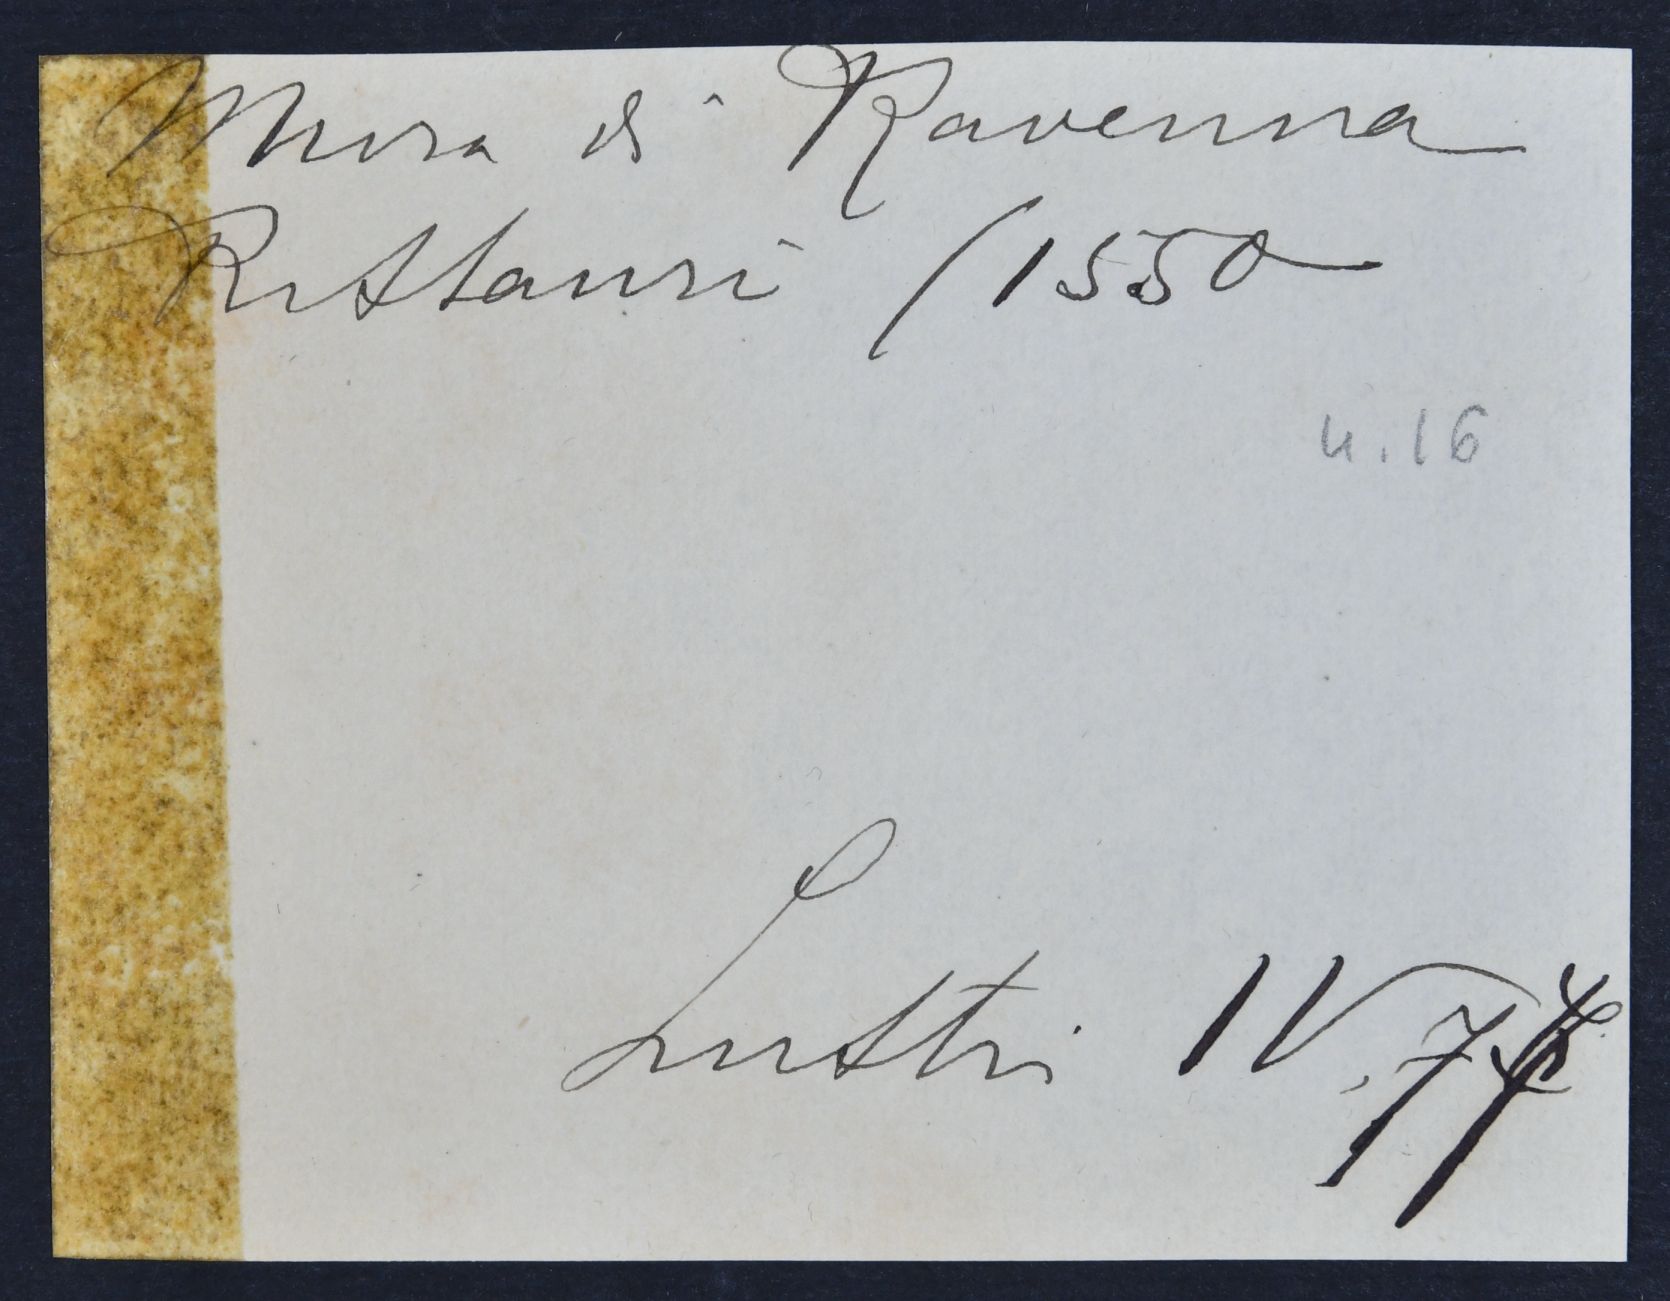 Mura di Ravenna
Ristauri /1550
n.16
Lustri IV. 77